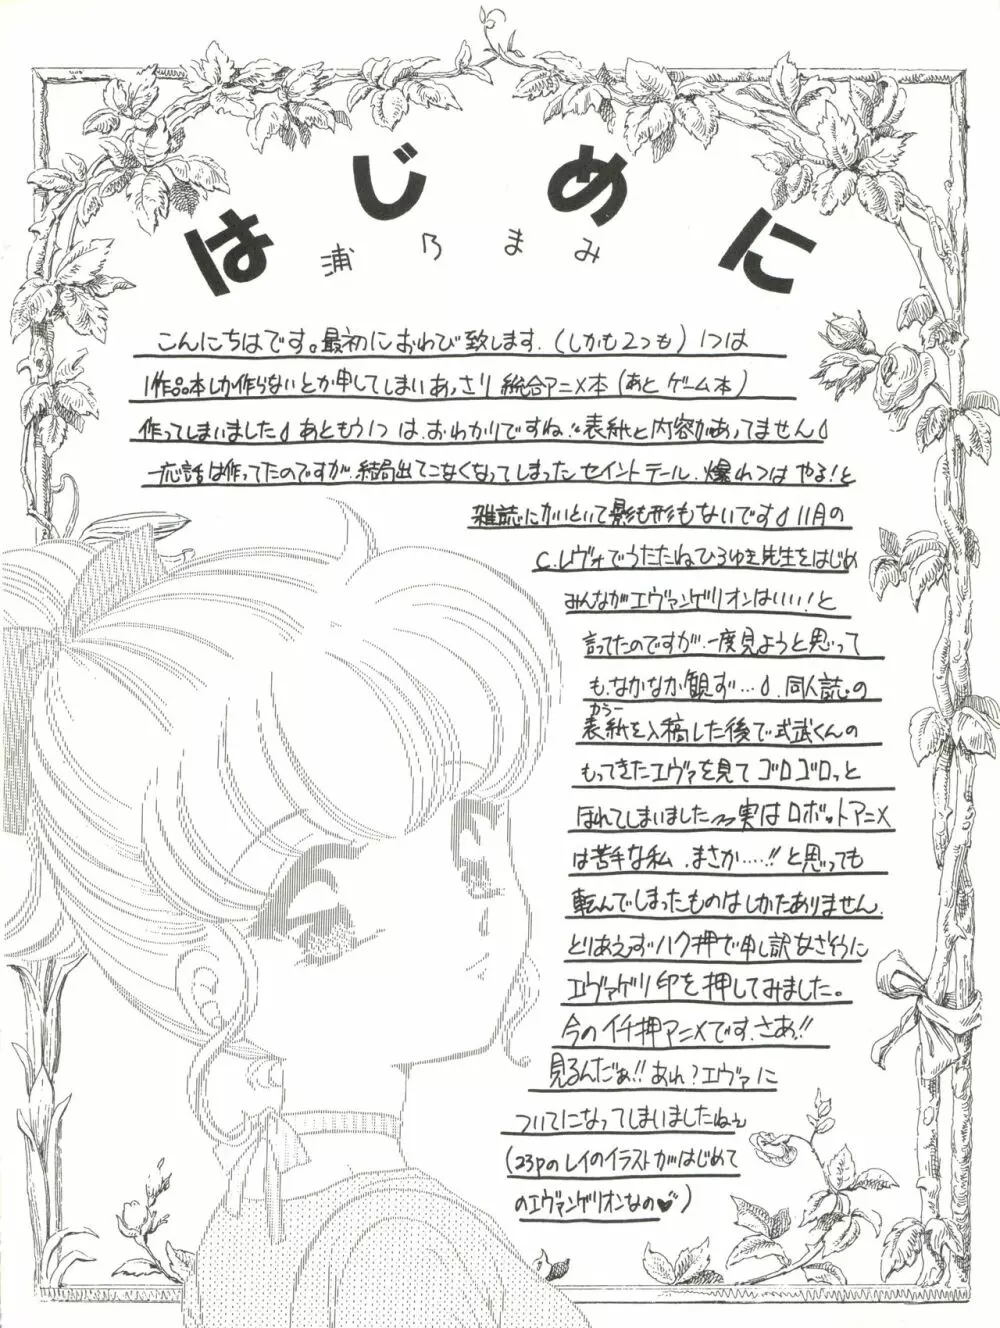 はじめに
浦乃まみ
こんにちはです。最初におわび致します.(しかも2つも)1つは
1作品本しか作らないとか申してしまいあっさり総合アニメ本(あとゲーム本)
作ってしまいました あともう1つは、おわかりですね 表紙と内容があってません
一応話は作ってたのですが、結局出てこなくなってしまったセイントテール.爆れつはやる!と
雑誌にかいといて影も形もないです 11月の
C.レヴォでうたたねひろゆき先生をはじめ
みんながエヴァンゲリオンはいい!と
言ってたのですが、一度見ようと思って
も、なかなか観ず… 、同人誌の
カラー
表紙を入稿した後で式武くんの
もってきたエヴァを見てゴロゴロっと
ほれてしまいました 実はロボットアニメ
は苦手な私、まさか……!!と思っても
転んでしまったものはしかたありません.
とりあえずハク押で申し訳なさそうに
エヴァゲリ印を押してみました。
今のイチ押アニメです.さあ!!
見るんだぁ!!あれ?エヴァに
ついてになってしまいましたねぇ
(23pのレイのイラストがはじめて
のエヴァンゲリオンなの♥)